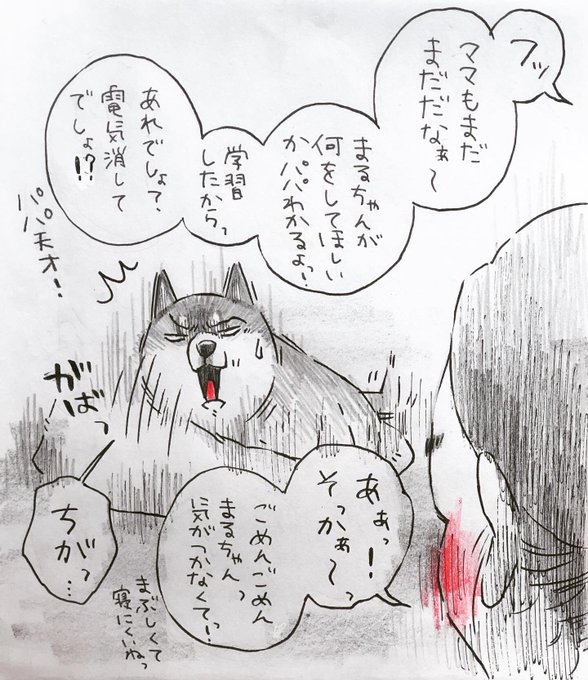 フッ
ママもまだ
まだだなぁ〜
まるちゃんが
何をしてほしい
かパパわかるよっ!
学習
したからっ
あれでしょ?、
電気消して
でしょ!?
パパ天才!
がばっ
ちがっ…
あぁっ!
そっかぁ〜っ
ごめんごめん
まるちゃんっ
気がつかなくてっ!
まぶしくて
寝にくいねっ